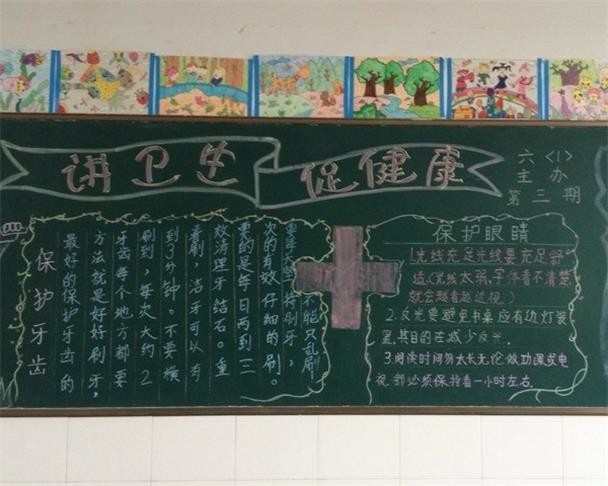 讲卫生 促健康
六〈1〉
主办
第三期
保护牙齿
最好的保护牙齿的
方法就是好好刷牙,
牙齿每个地方都要
刷到,每次大约2
到3分钟。不要横
着刷,洁牙可以有
效清理牙结石。重
要的是每日两到三
次的有效仔细的刷。
刷牙,
不能只乱刷
保护眼睛
1光线充足光线要充足舒
适(光线太弱,字体看不清楚
就会越看越近视)
2.反光要避免书桌应有边灯装
置,其目的在减少反光。
3.阅读时间勿太长无论做功课或电
视都必须保持看一小时左右.